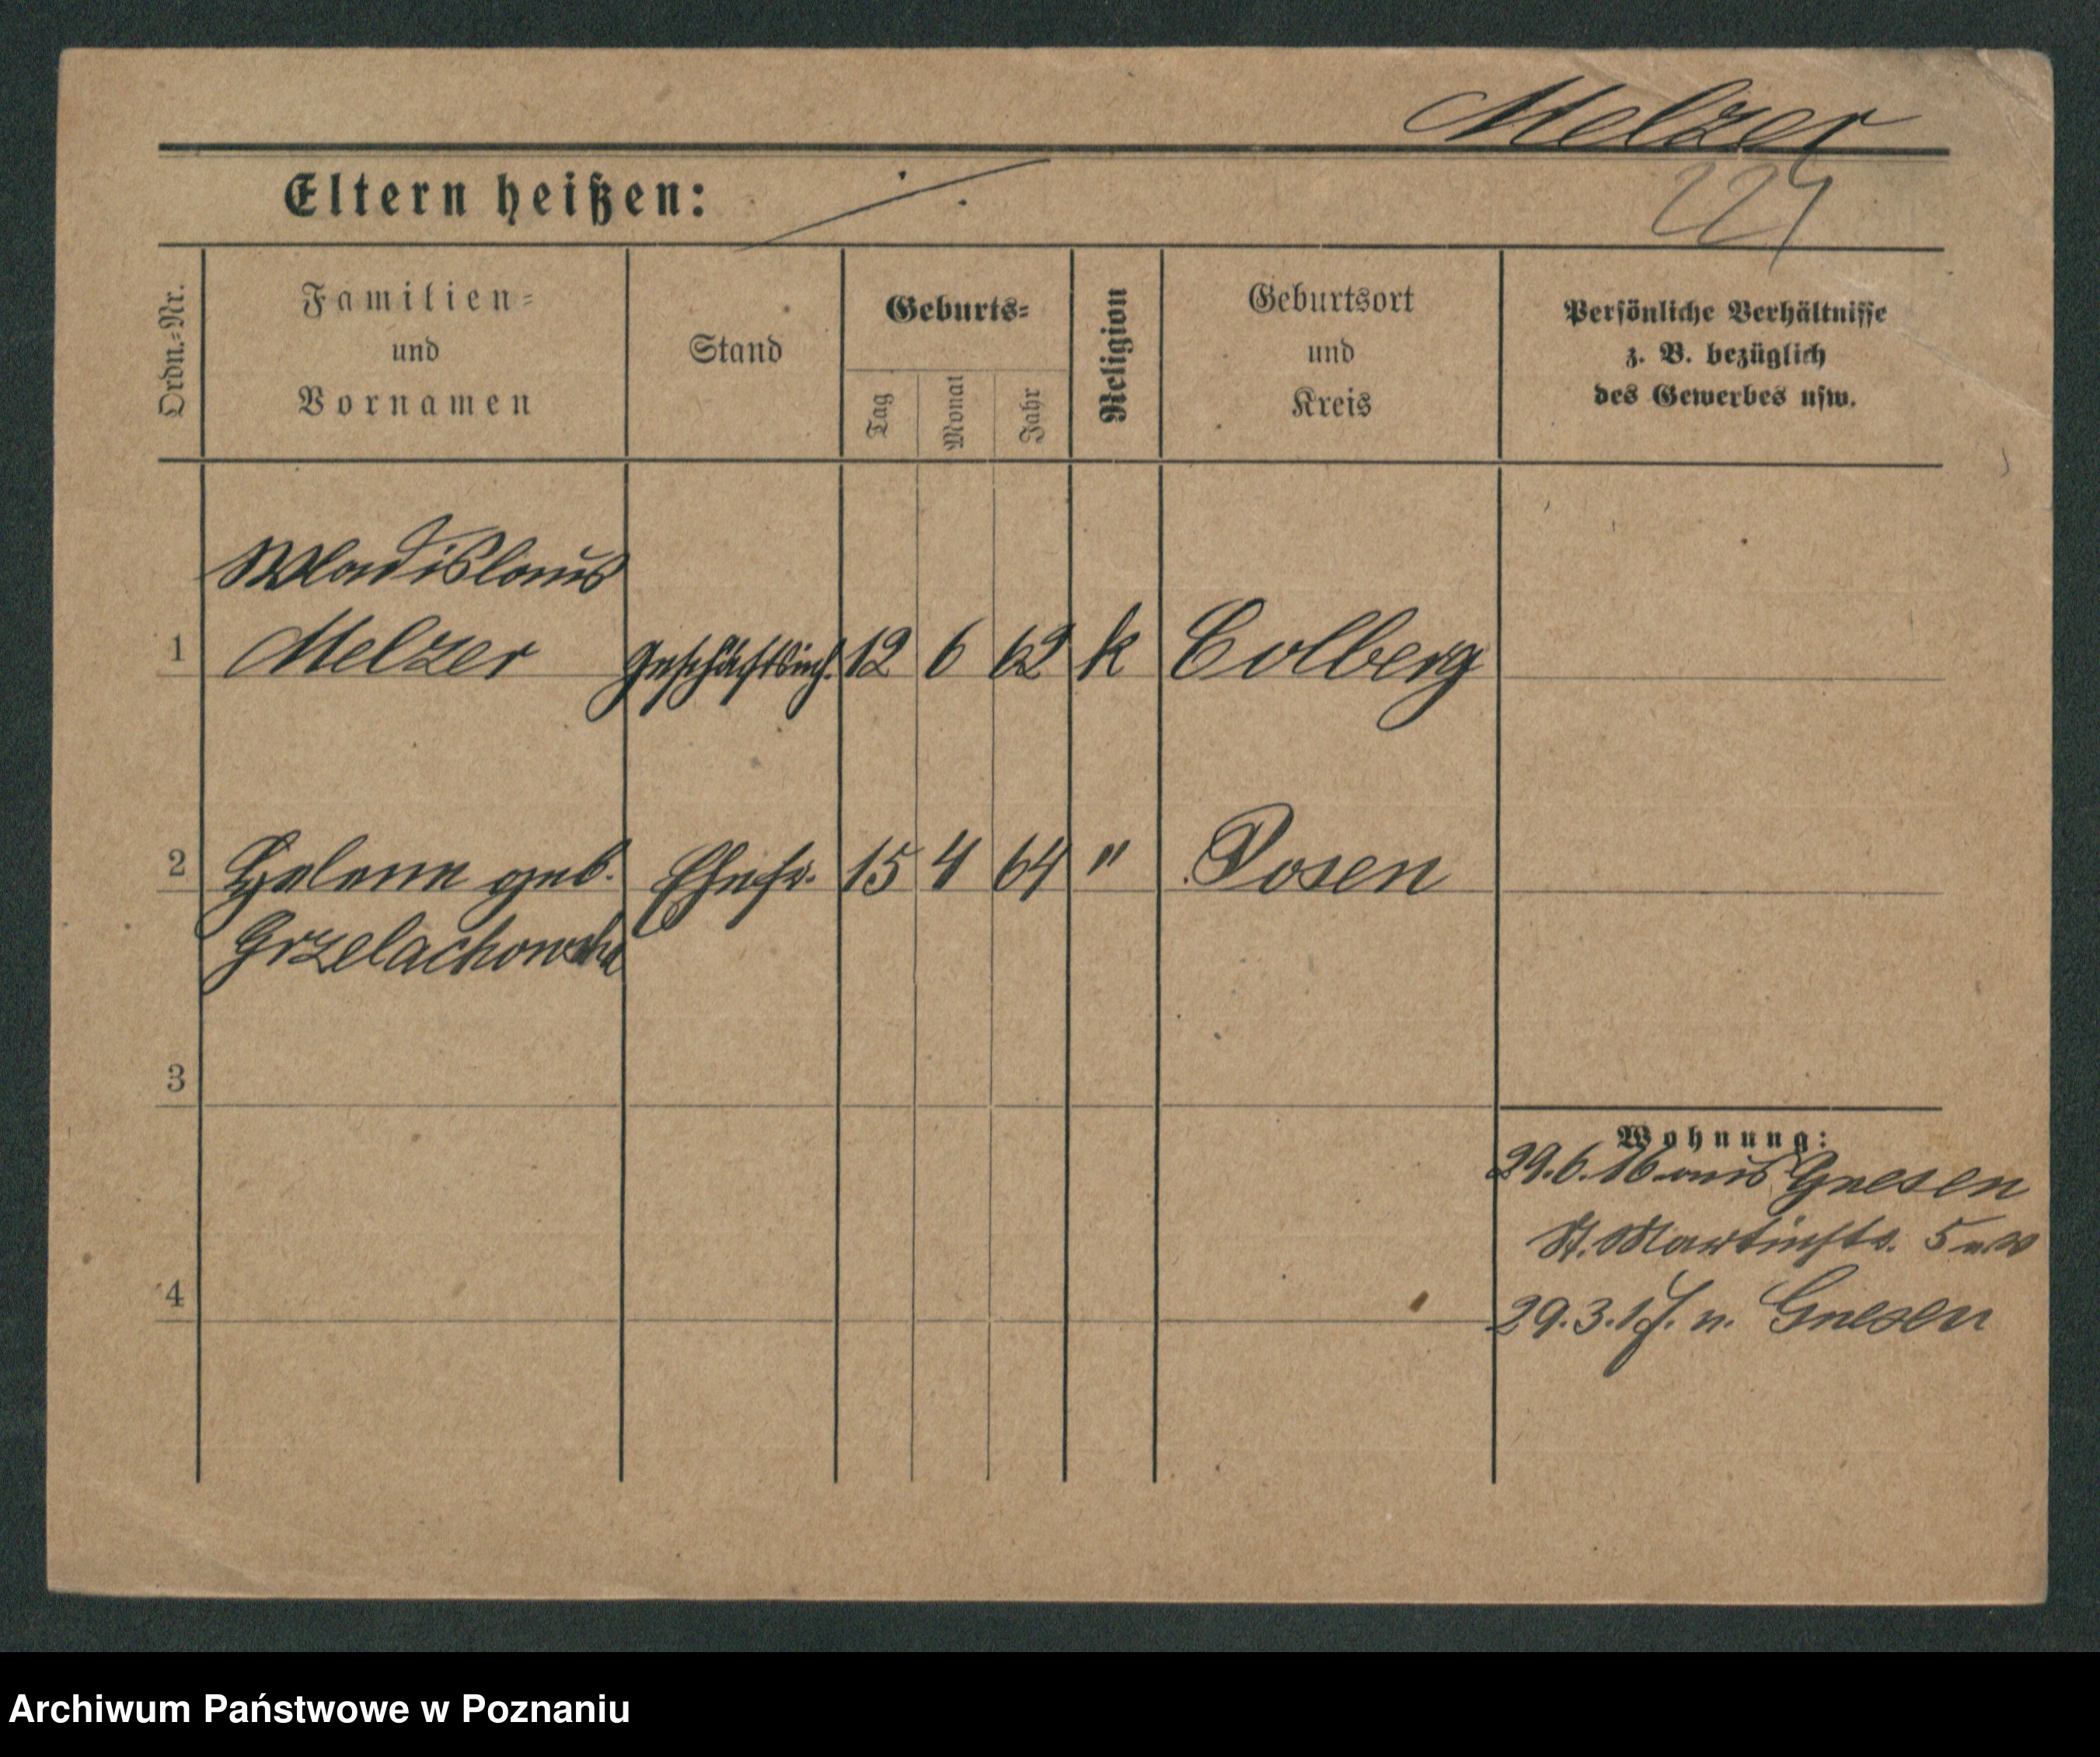 Melzer
Eltern heißen:
Ordn.=Nr.
Familien=
und
Vornamen
Stand
Geburts=
Tag
Monat
Jahr
Religion
Geburtsort
und
Kreis
Persönliche Verhältnisse
z. B. bezüglich
des Gewerbes usw.
Wladislaus
1 Melzer 12 6 62 k Colberg
2 Helene geb. Ehefr. 15 4 64 " Posen
Grzelachowska
3
Wohnung:
29.6.16 aus Gnesen
St. Martinstr. 5
4
29.3.17. n. Gnesen
Archiwum Państwowe w Poznaniu